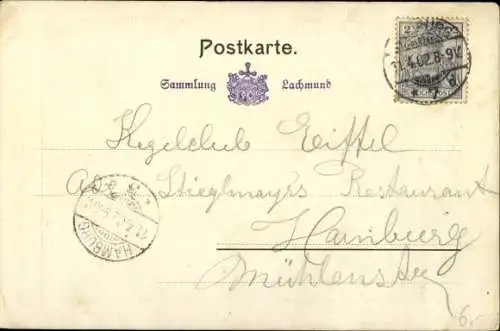 Postkarte.
Sammlung Lachmund
Kegelclub Eiffel
Stieglmayrs Restaurant
Hamburg
11.4.02.8-9V
HAMBURG
11.4.02
6,-